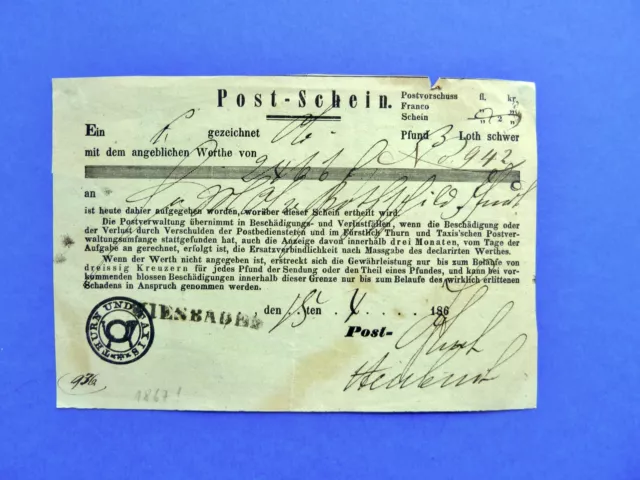 Post-Schein.
Postvorschuss fl. kr.
Franco " "
Schein " 2 "
Ein gezeichnet Pfund 3 Loth schwer
mit dem angeblichen Werthe von No. 942
an
ist heute dahier aufgegeben worden, worüber dieser Schein ertheilt wird.
Die Postverwaltung übernimmt in Beschädigungs- und Verlustfällen, wenn die Beschädigung oder
der Verlust durch Verschulden der Postbediensteten und im Fürstlich Thurn und Taxis'schen Postver-
waltungsumfange stattgefunden hat, auch die Anzeige davon innerhalb drei Monaten, vom Tage der
Aufgabe an gerechnet, erfolgt ist, die Ersatzverbindlichkeit nach Massgabe des declarirten Werthes.
Wenn der Werth nicht angegeben ist, erstreckt sich die Gewährleistung nur bis zum Belaufe von
dreissig Kreuzern für jedes Pfund der Sendung oder den Theil eines Pfundes, und kann bei vor-
kommenden blossen Beschädigungen innerhalb dieser Grenze nur bis zum Belaufe des wirklich erlittenen
Schadens in Anspruch genommen werden.
WIESBADEN, den 15ten 4 186
Post-
THURN UND TAXIS
93/a
1867!